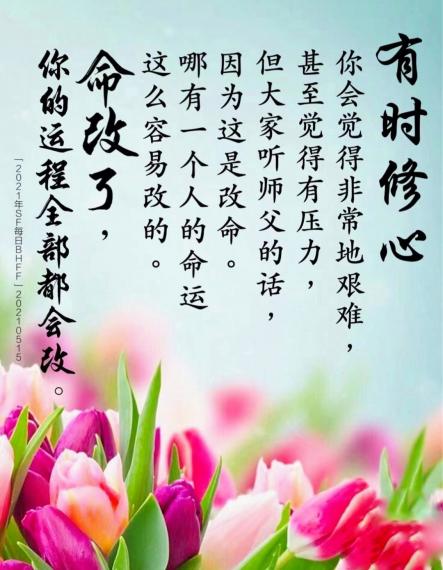 有时修心
你会觉得非常地艰难，
甚至觉得有压力，
但大家听师父的话，
因为这是改命。
哪有一个人的命运
这么容易改的。
命改了，
你的运程全部都会改。
「2021年SF每日BHFF」20210515